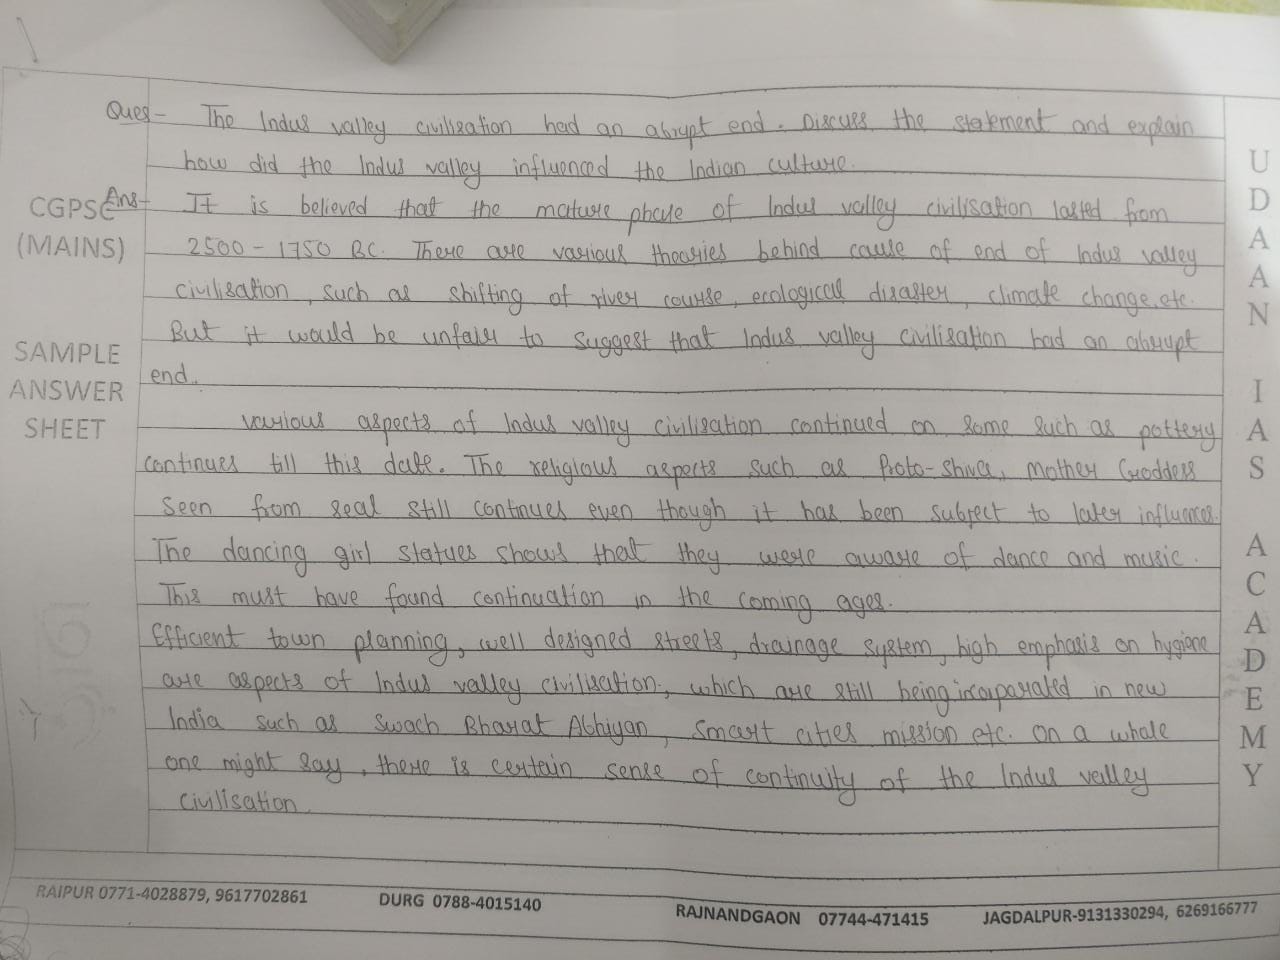 Ques- The Indus valley civilisation had an abrupt end. Discuss the statement and explain
how did the Indus valley influenced the Indian culture.
CGPSC
(MAINS)
SAMPLE
ANSWER
SHEET
Ans- It is believed that the mature phase of Indus valley civilisation lasted from
2500-1750 BC. There are various theories behind cause of end of Indus valley
civilisation, such as shifting of river course, ecological disaster, climate change, etc.
But it would be unfair to suggest that Indus valley civilisation had an abrupt
end.
various aspects of Indus valley civilisation continued on some such as pottery
continues till this date. The religious aspects such as Proto-Shiva, Mother Goddess
seen from seal still continues even though it has been subject to later influences.
The dancing girl statues shows that they were aware of dance and music.
This must have found continuation in the coming ages.
Efficient town planning, well designed streets, drainage system, high emphasis on hygiene
are aspects of Indus valley civilisation, which are still being incorporated in new
India such as Swach Bharat Abhiyan, Smart cities mission etc. on a whole
one might say, there is certain sense of continuity of the Indus valley
civilisation.
UDAAN IAS ACADEMY
RAIPUR 0771-4028879, 9617702861 DURG 0788-4015140 RAJNANDGAON 07744-471415 JAGDALPUR-9131330294, 6269166777